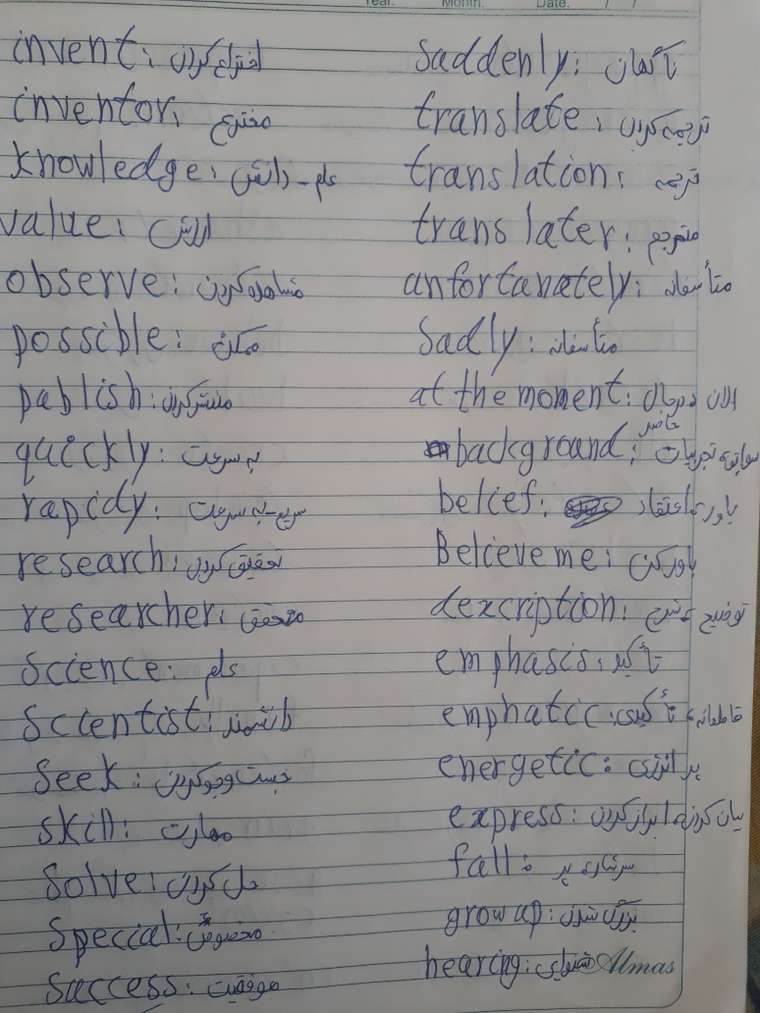 Year. Month. Date. / /
invent: اختراع کردن
inventor: مخترع
knowledge: علم - دانش
value: ارزش
observe: مشاهده کردن
possible: ممکن
pablish: منتشر کردن
quickly: به سرعت
rapidy: سریع - به سرعت
research: تحقیق کردن
researcher: محقق
science: علم
scientist: دانشمند
seek: جست و جو کردن
skill: مهارت
solve: حل کردن
special: مخصوص
success: موفقیت
saddenly: ناگهان
translate: ترجمه کردن
translation: ترجمه
translater: مترجم
anfortanately: متأسفانه
sadly: متأسفانه
at the moment: الان، درحال حاضر
background: سابقه، تجربیات
belief: باور، اعتقاد
Believe me: باور کن
dexcription: توضیح، شرح
emphasis: تأکید
emphatic: تأکیدی، قاطعانه
energetic: پر انرژی
express: بیان کردن، ابراز کردن
fall: سرشار، پر
grow ap: بزرگ شدن
hearing: شنوایی
Almas